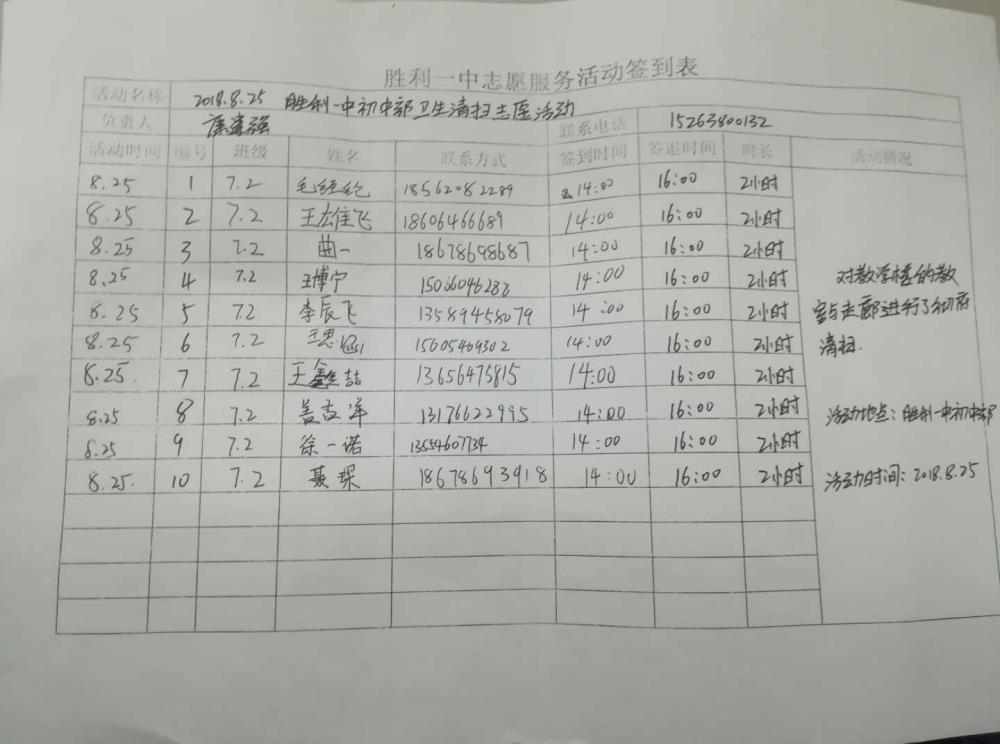 胜利一中志愿服务活动签到表
活动名称 2018.8.25 胜利一中初中部卫生清扫志愿活动
负责人 联系电话 15263800132
活动时间 编号 班级 姓名 联系方式 签到时间 签退时间 时长 活动情况
8.25 1 7.2 毛经纶 18562082289 14:00 16:00 2小时
8.25 2 7.2 王雄飞 18606466689 14:00 16:00 2小时
8.25 3 7.2 曲一 18678698687 14:00 16:00 2小时
8.25 4 7.2 王博宁 15066046288 14:00 16:00 2小时 对教学楼的教
8.25 5 7.2 李辰飞 13589458079 14:00 16:00 2小时 室与走廊进行了初府
8.25 6 7.2 王思涵 15605469302 14:00 16:00 2小时 清扫.
8.25. 7 7.2 王鑫喆 13656475815 14:00 16:00 2小时
8.25 8 7.2 盖志洋 13176622995 14:00 16:00 2小时 活动地点:胜利一中初中部
8.25 9 7.2 徐一诺 13554607734 14:00 16:00 2小时
8.25. 10 7.2 聂琛 18678693918 14:00 16:00 2小时 活动时间:2018.8.25